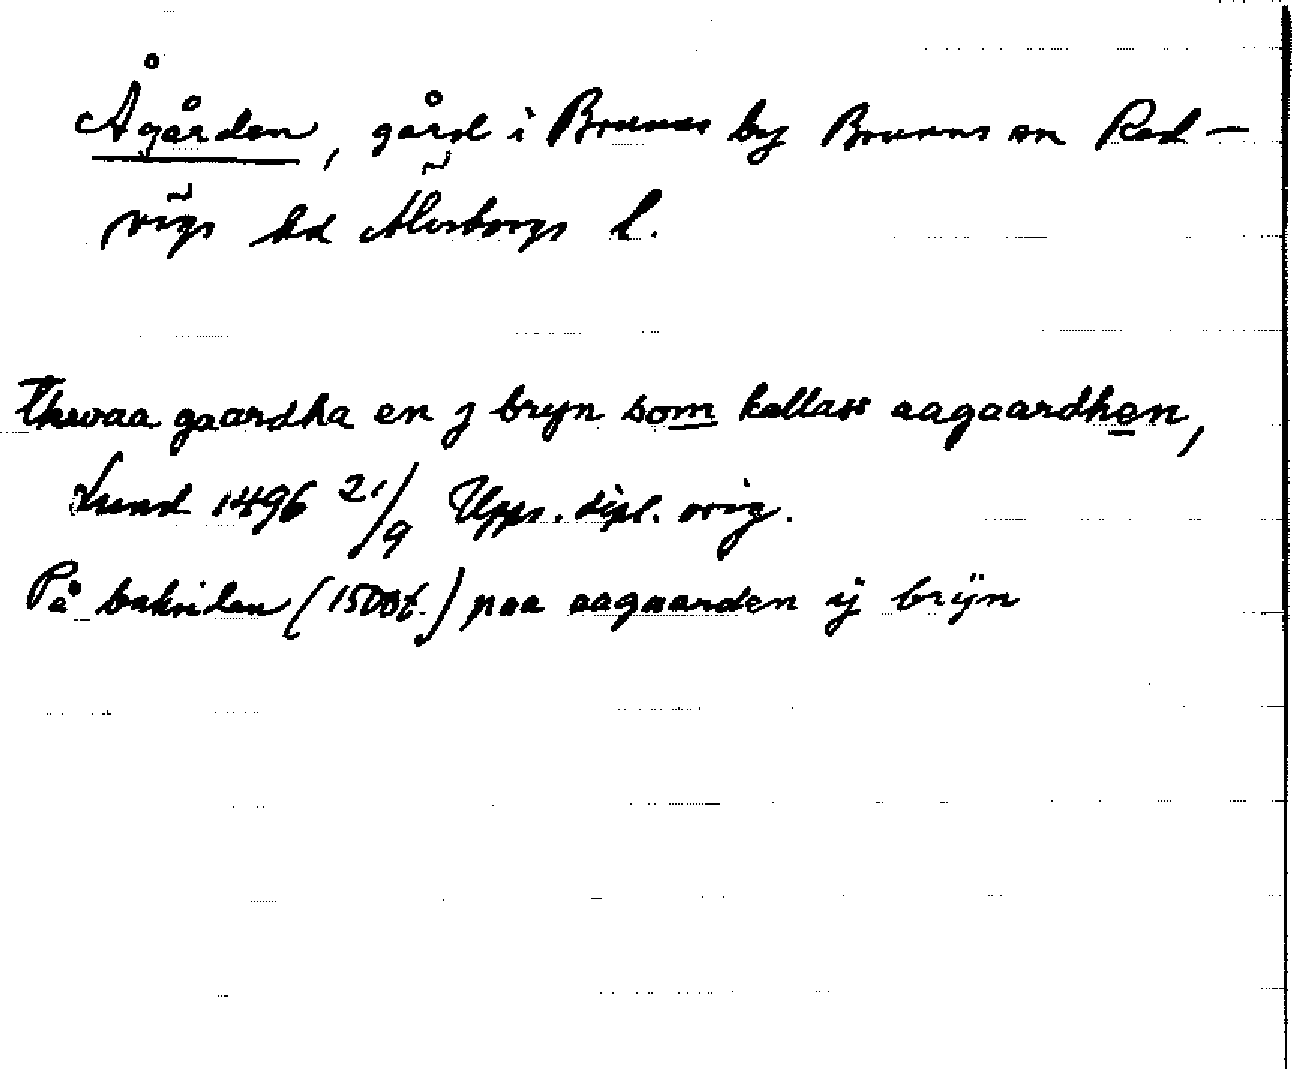 Ågården, gård i Brunns by Brunns sn Red-
vägs hd Älvsborgs l.
Thwaa gaardha en j bryn som kallass aagaardhen,
Lund 1496 21/9 Upps. dipl. orig.
På baksidan (1500t.) paa aagaarden ij brÿn